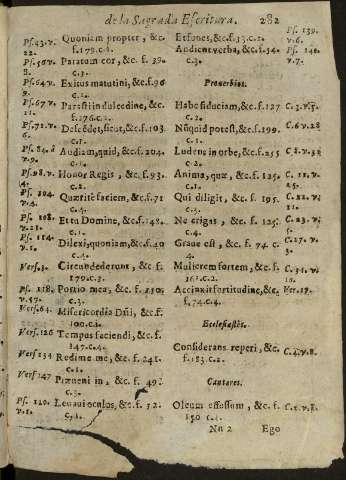 de la Sagrada Escritura. 282
Ps. 43. v. 22. Quoniam propter, &c. f. 179. c. 4.
Paratum cor, &c. f. 39. c. 3.
Ps. 64. v. Exitus matutini, &c. f. 96 c. 2.
Ps. 67. v. 11. Parasti in dulcedine, &c. f. 276. c. 2.
Ps. 71. v. 6. Descēdet, sicut, &c. f. 103. c. 1.
Ps. 84. v. 9. Audiam, quid, &c. f. 204. c. 1.
Ps. 98. v. 4. Honor Regis, &c. f. 93. c. 2.
Ps. 104. v. 4. Quærite faciem, &c. f. 71 c. 4.
Ps. 108. v. 21. Et tu Domine, &c. f. 148. c. 1.
Ps. 114. v. 1. Dilexi, quoniam, &c. f. 40 c. 4.
Vers. 3. Circundederunt, &c. f. 179. c. 3.
Ps. 118. v. 57. Portio mea, &c. f. 250. c. 3.
Vers. 64. Misericordia Dñi, &c. f. 100. c. 1.
Vers. 126 Tempus faciendi, &c. f. 147. c. 4.
Vers 154 Redime me, &c. f. 241. c. 1.
Vers 147 Præueni in, &c. f. 49. c. 3.
Ps. 120. v. 1. Leuaui oculos, &c. f. 32. c. 1.
Et fones, &c. f. 13. c. 2. Ps. 139. v. 6.
Audient verba, &c. f. 34. c. 3. Ps. 140. v. 7.
Prouerbios.
Habe fiduciam, &c. f. 127 c. 2. C. 3. v. 5.
Nũquid potest, &c. f. 199. c. 1. C. 6 v. 28
Ludens in orbe, &c. f. 255 c. 2.
Anima, quæ, &c. f. 125. c. 1. C. 11. v. 25.
Qui diligit, &c. f. 195. c. 1. C. 22. v. 11.
Ne erigas, &c. f. 125. c. 4. C. 23. v. 5.
Graue est, &c. f. 74. c. 3. C. 27. v. 3.
Mulierem fortem, &c. f. 161. c. 2. C. 31. v. 10.
Accinxit fortitudine, &c. f. 74. c. 4. Ver. 17.
Ecclesiastès.
Considerans reperi, &c. f. 183. c. 2. C. 4. v. 8.
Cantares.
Oleum effusum, &c. f 150 c. 4.
Nn 2 Ego